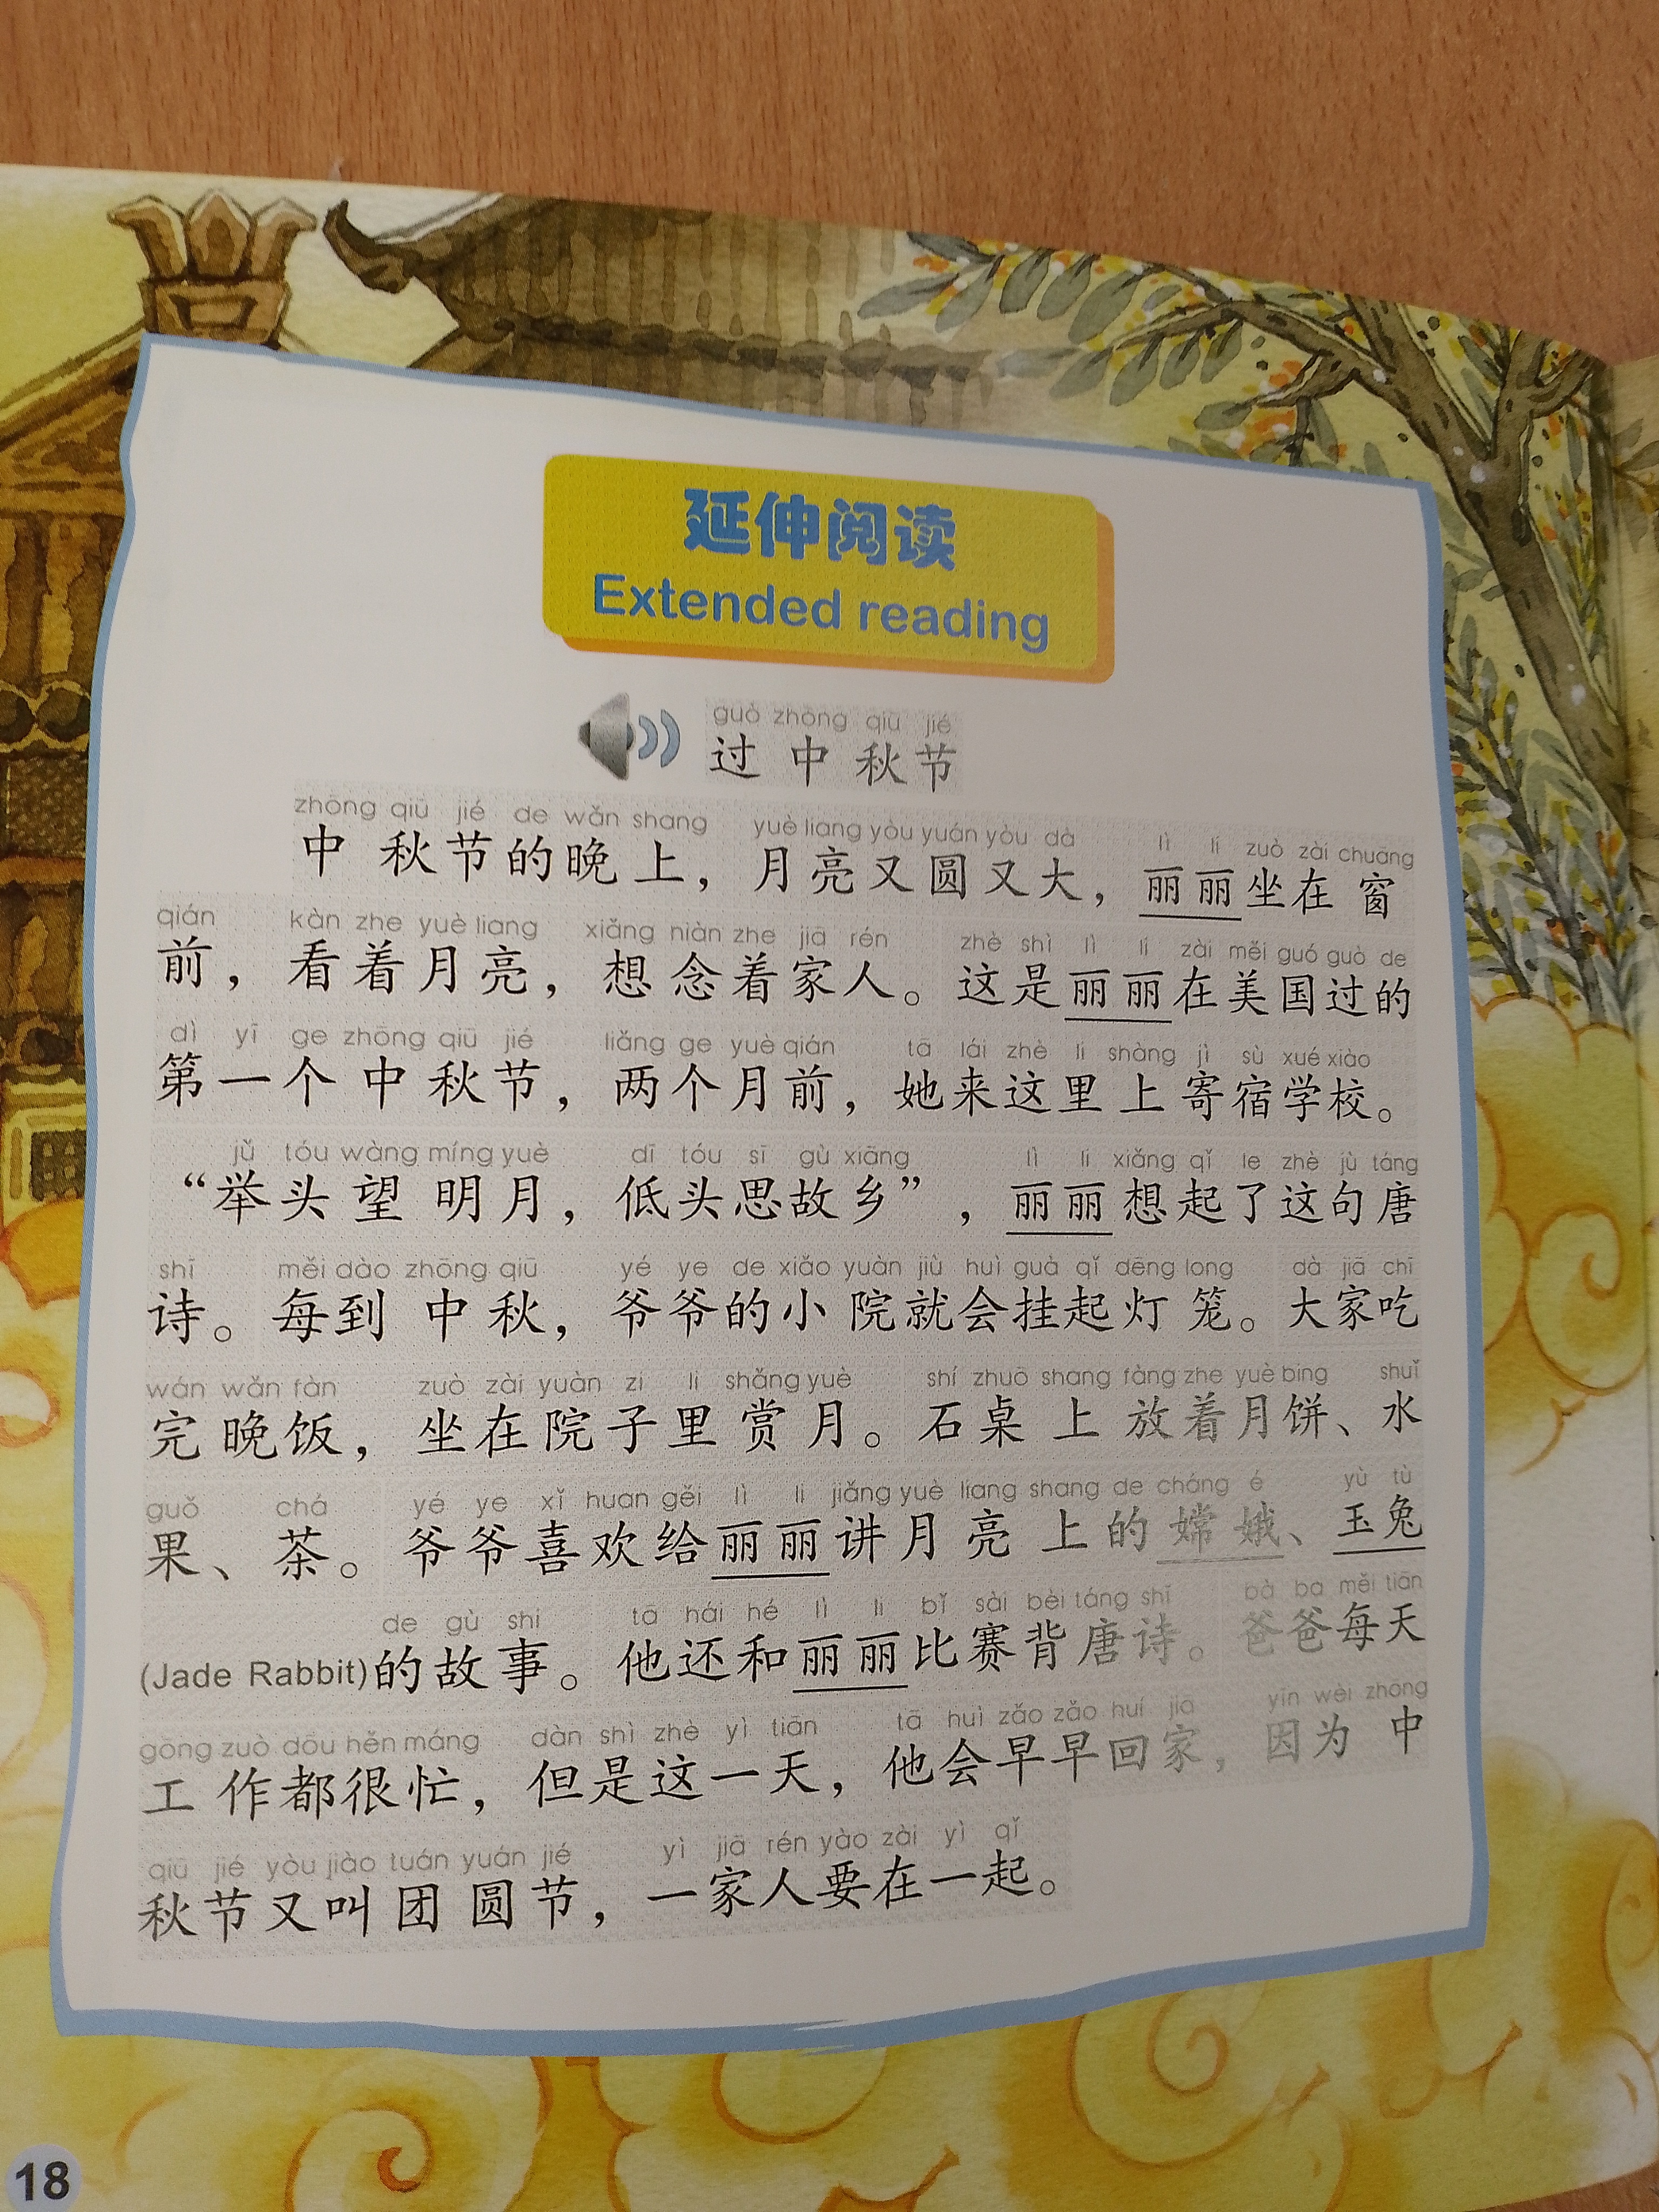 延伸阅读
Extended reading
guò zhōng qiū jié
过中秋节
zhōng qiū jié de wǎn shang yuè liang yòu yuán yòu dà lì li zuò zài chuāng
中秋节的晚上，月亮又圆又大，丽丽坐在窗
qián kàn zhe yuè liang xiǎng niàn zhe jiā rén zhè shì lì li zài měi guó guò de
前，看着月亮，想念着家人。这是丽丽在美国过的
dì yī ge zhōng qiū jié liǎng ge yuè qián tā lái zhè li shàng jì sù xué xiào
第一个中秋节，两个月前，她来这里上寄宿学校。
jǔ tóu wàng míng yuè dī tóu sī gù xiāng lì li xiǎng qǐ le zhè jù táng
“举头望明月，低头思故乡”，丽丽想起了这句唐
shī měi dào zhōng qiū yé ye de xiǎo yuàn jiù huì guà qǐ dēng long dà jiā chī
诗。每到中秋，爷爷的小院就会挂起灯笼。大家吃
wán wǎn fàn zuò zài yuàn zi li shǎng yuè shí zhuō shang fàng zhe yuè bing shuǐ
完晚饭，坐在院子里赏月。石桌上放着月饼、水
guǒ chá yé ye xǐ huan gěi lì li jiǎng yuè liang shang de cháng é yù tù
果、茶。爷爷喜欢给丽丽讲月亮上的嫦娥、玉兔
de gù shi tā hái hé lì li bǐ sài bèi táng shī bà ba měi tiān
(Jade Rabbit)的故事。他还和丽丽比赛背唐诗。爸爸每天
gōng zuò dōu hěn máng dàn shì zhè yì tiān tā huì zǎo zǎo huí jiā yīn wèi zhōng
工作都很忙，但是这一天，他会早早回家，因为中
qiū jié yòu jiào tuán yuán jié yì jiā rén yào zài yì qǐ
秋节又叫团圆节，一家人要在一起。
18